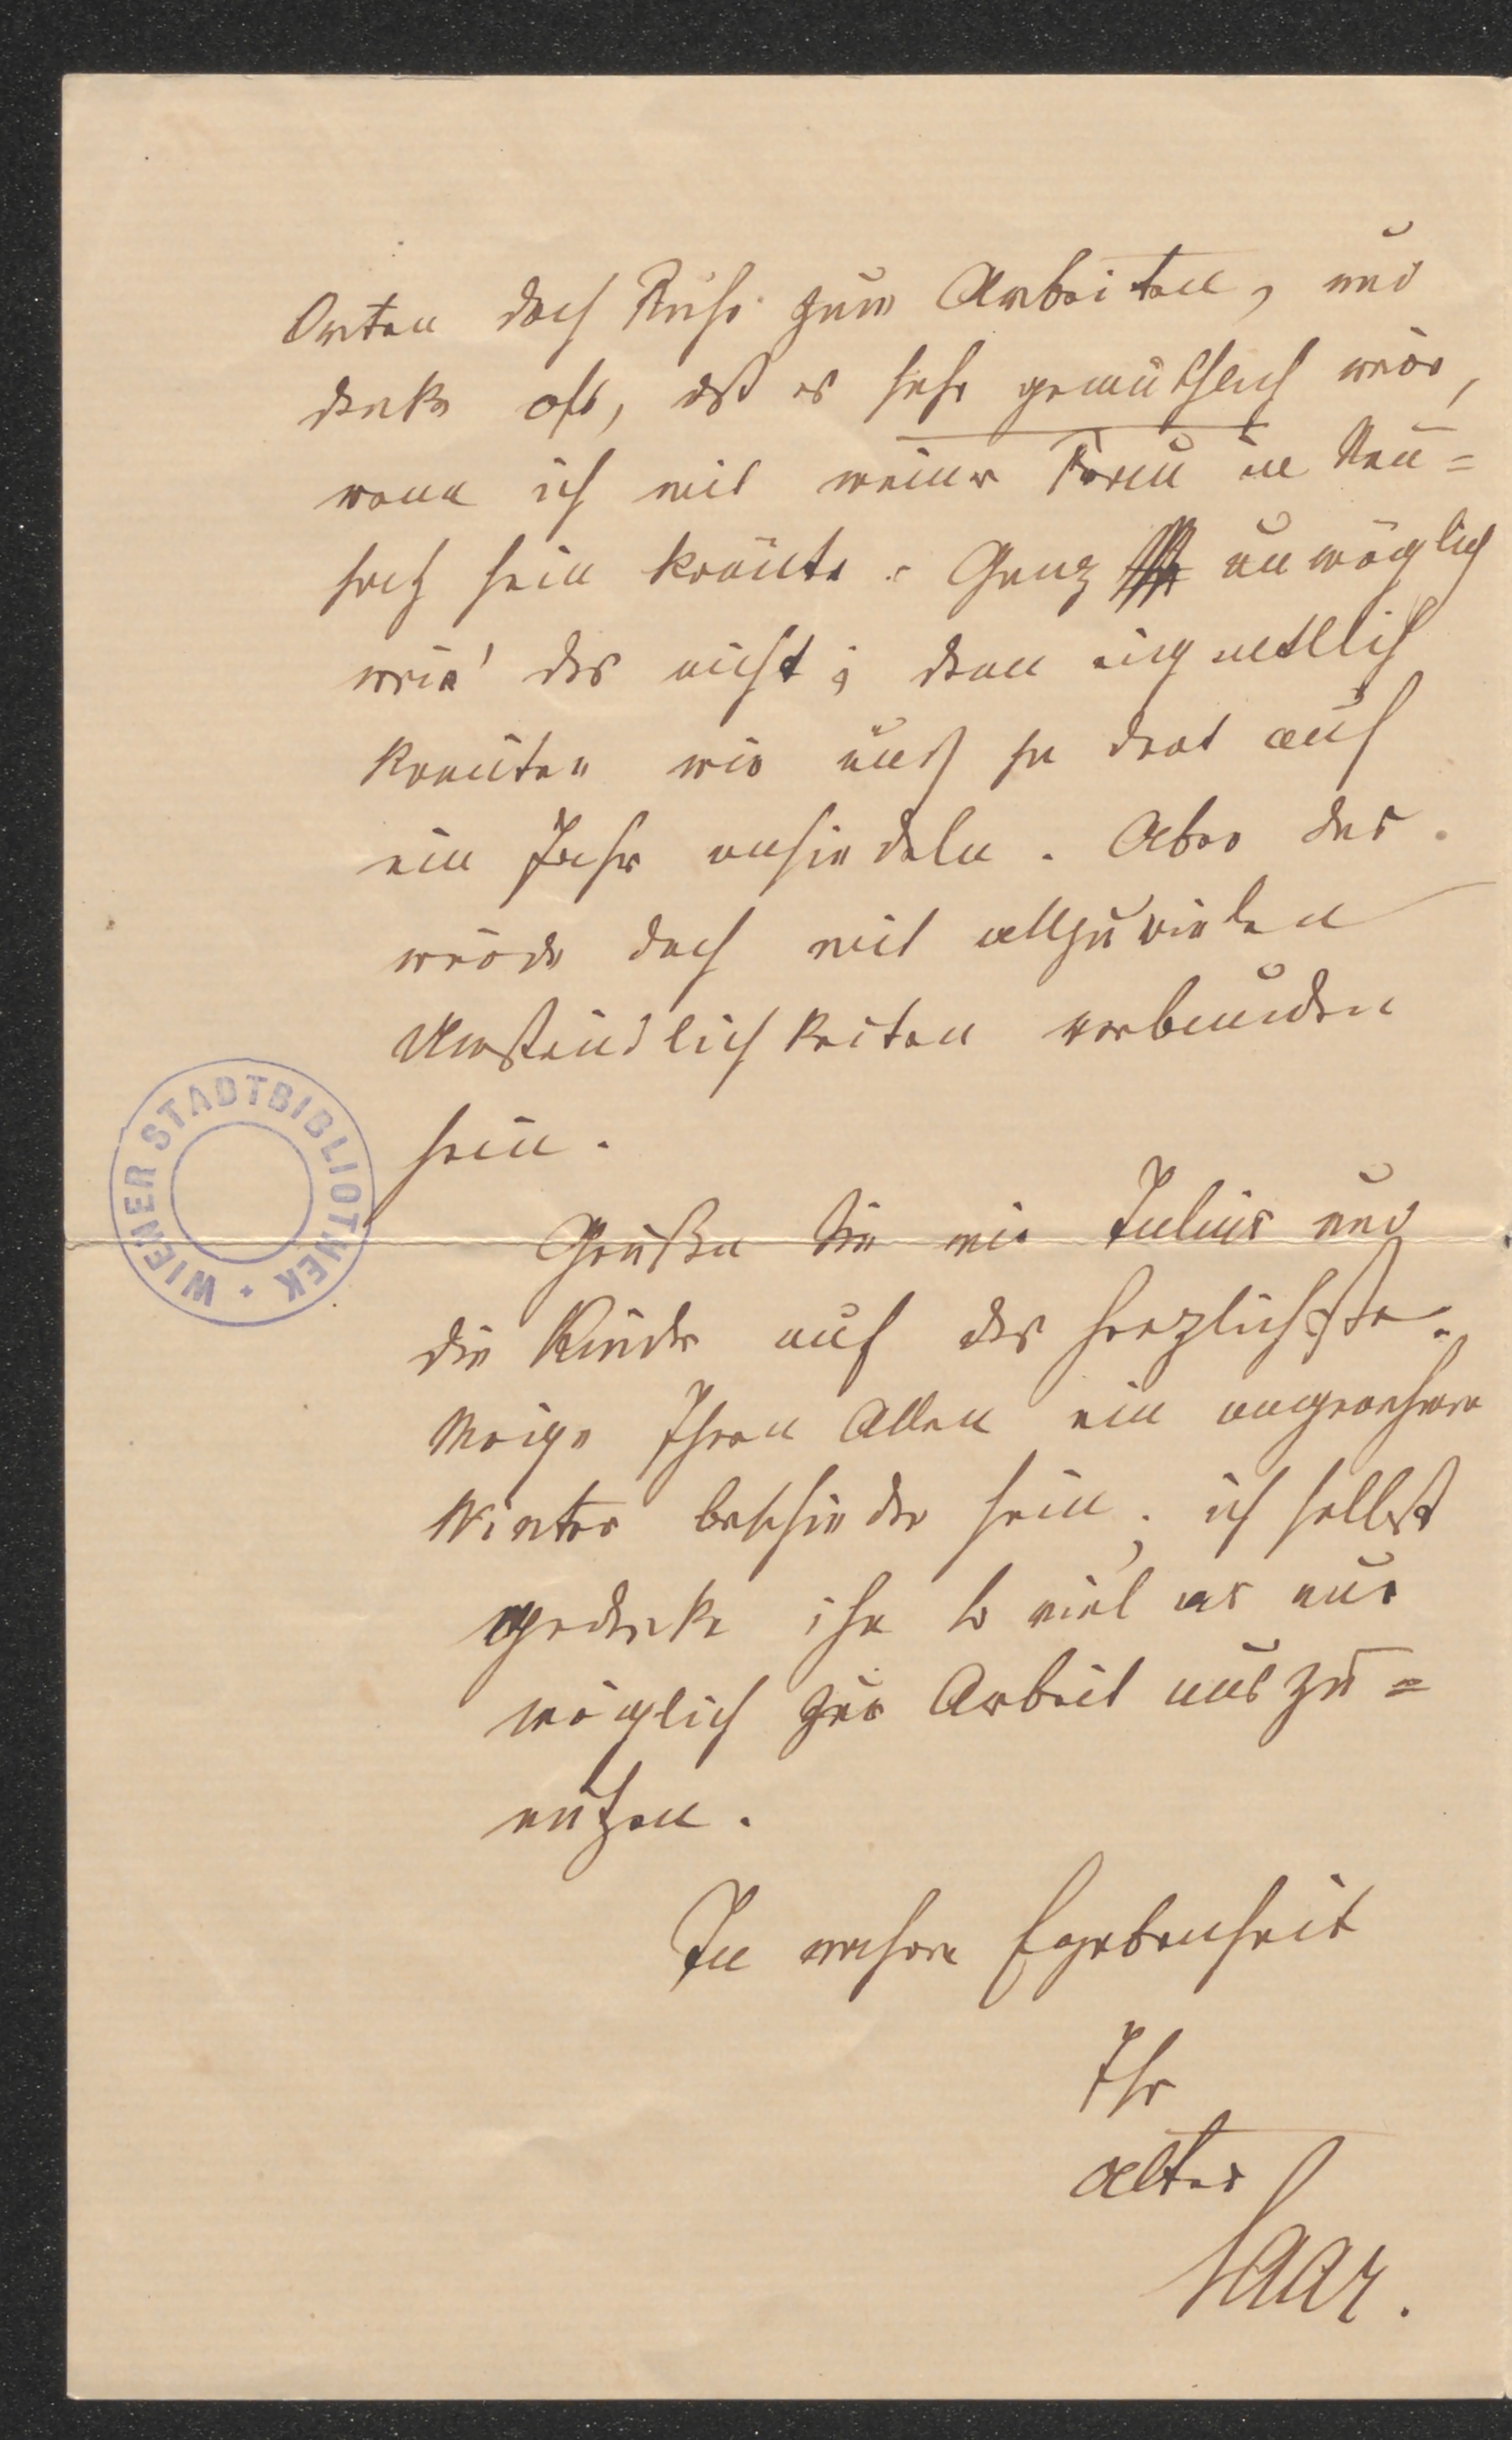 Orten doch Ruhe zum Arbeiten, und
denke oft, daß es sehr gemüthlich wäre,
wenn ich mit meiner Frau in Neu=
hach sein könnte. Ganz unmöglich
wär' das nicht; denn eigentlich
könnten wir uns ja dort auf
ein Jahr ansiedeln. Aber das
würde doch mit allzuvielen
Umständlichkeiten verbunden
sein.
Grüßen Sie mir Julius und
die Kinder auf das herzlichste.
Möge Ihnen Allen ein angenehmer
Winter beschieden sein; ich selbst
gedenke ihn so viel als nur
möglich zur Arbeit auszu=
nützen.
In wahrer Ergebenheit
Ihr
alter
Saar.
WIENER STADTBIBLIOTHEK